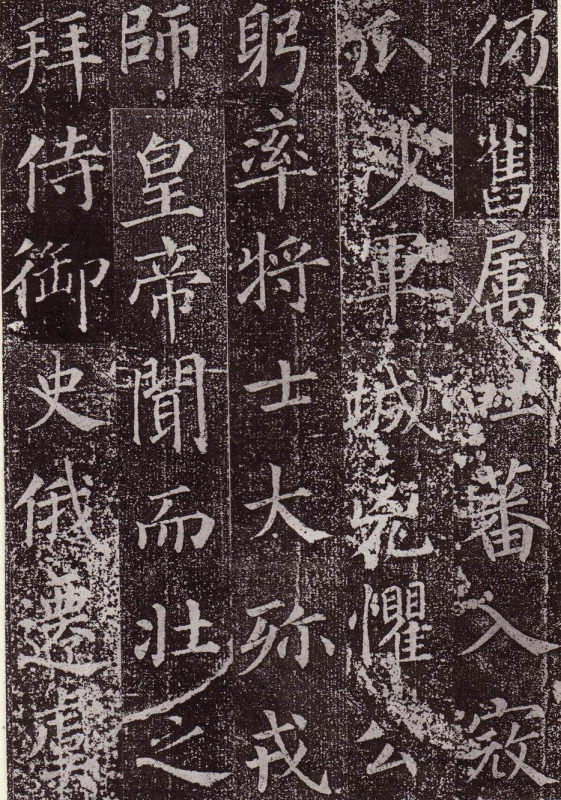 仍舊属吐蕃入寇
瓜沙軍城兇懼公
躬率将士大殄戎
師皇帝聞而壯之
拜侍御史俄遷虞